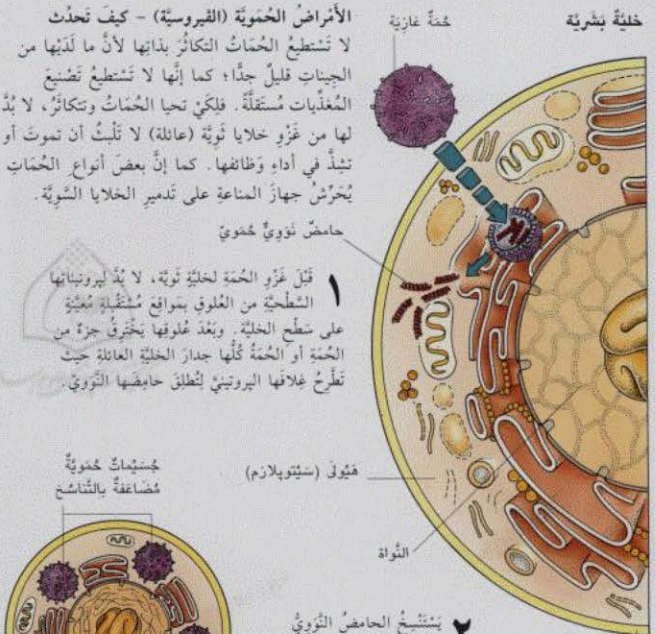 الأَمْراضُ الحُمَوِيَّة (الڤيروسيَّة) – كيفَ تَحدُث
لا تَسْتطيعُ الحُمَاتُ التكاثُرَ بذاتِها لأنَّ ما لَدَيْها من
الجِيناتِ قليلٌ جدًّا؛ كما إنَّها لا تَسْتطيعُ تَصْنيعَ
المُغذِّيات مُستَقلَّةً. فلِكَيْ تحيا الحُمَاتُ وتتكاثَرُ، لا بُدَّ
لها من غَزْوِ خلايا ثَوِيَّة (عائلة) لا تَلْبثُ أن تموتَ أو
تشِذَّ في أداءِ وَظائفها. كما إنَّ بعضَ أنواعِ الحُمَاتِ
يُحَرِّشُ جهازَ المناعةِ على تَدميرِ الخلايا السَّوِيَّة.
خليَّةٌ بَشَريَّة
حُمَةٌ غازِيَة
حامضٌ نَوَوِيٌّ حُمَوِيّ
١ قَبْلَ غَزْوِ الحُمَةِ لخليَّةٍ ثَوِيَّة، لا بُدَّ لِپروتيناتِها
السَّطْحيَّةِ من العُلوقِ بمَواقِعَ مُسْتَقْبِلةٍ مُعيَّنةٍ
على سَطْحِ الخليَّة. وبَعْدَ عُلوقِها يَخْتَرِقُ جزءٌ من
الحُمَةِ أو الحُمَةُ كُلُّها جدارَ الخليَّةِ العائلةِ حيثُ
تَطْرحُ غِلافَها الپروتينيَّ لِتُطلِقَ حامِضَها النَّوَوِيّ.
هَيُولَى (سَيْتوپلازم)
النَّواة
جُسَيْماتٌ حُمَوِيَّةٌ
مُضَاعَفةٌ بالتَّناسُخ
٢ يَسْتَنْسِخُ الحامضُ النَّوَوِيُّ